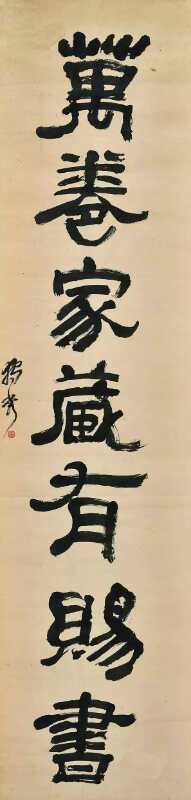 萬卷家藏有賜書